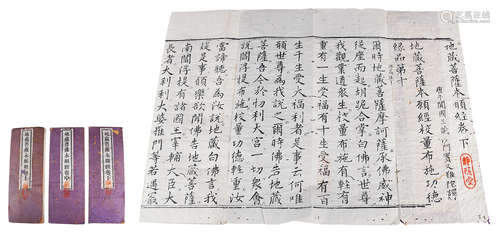 地藏菩薩本願經卷下
唐于闐國三藏沙門實叉難陀譯
地藏菩薩本願經校量布施功德
緣品第十
爾時地藏菩薩摩訶薩承佛威神
從座而起胡跪合掌白佛言世尊
我觀業道衆生校量布施有輕有
重有一生受福有十生受福有百
生千生受大福利者是事云何唯
願世尊為我說之爾時佛告地藏
菩薩吾今於忉利天宮一切衆會
說閻浮提布施校量功德輕重汝
當諦聽吾為汝說地藏白佛言我
疑是事願樂欲聞佛告地藏菩薩
南閻浮提有諸國王宰輔大臣大
長者大刹利大婆羅門等若遇最